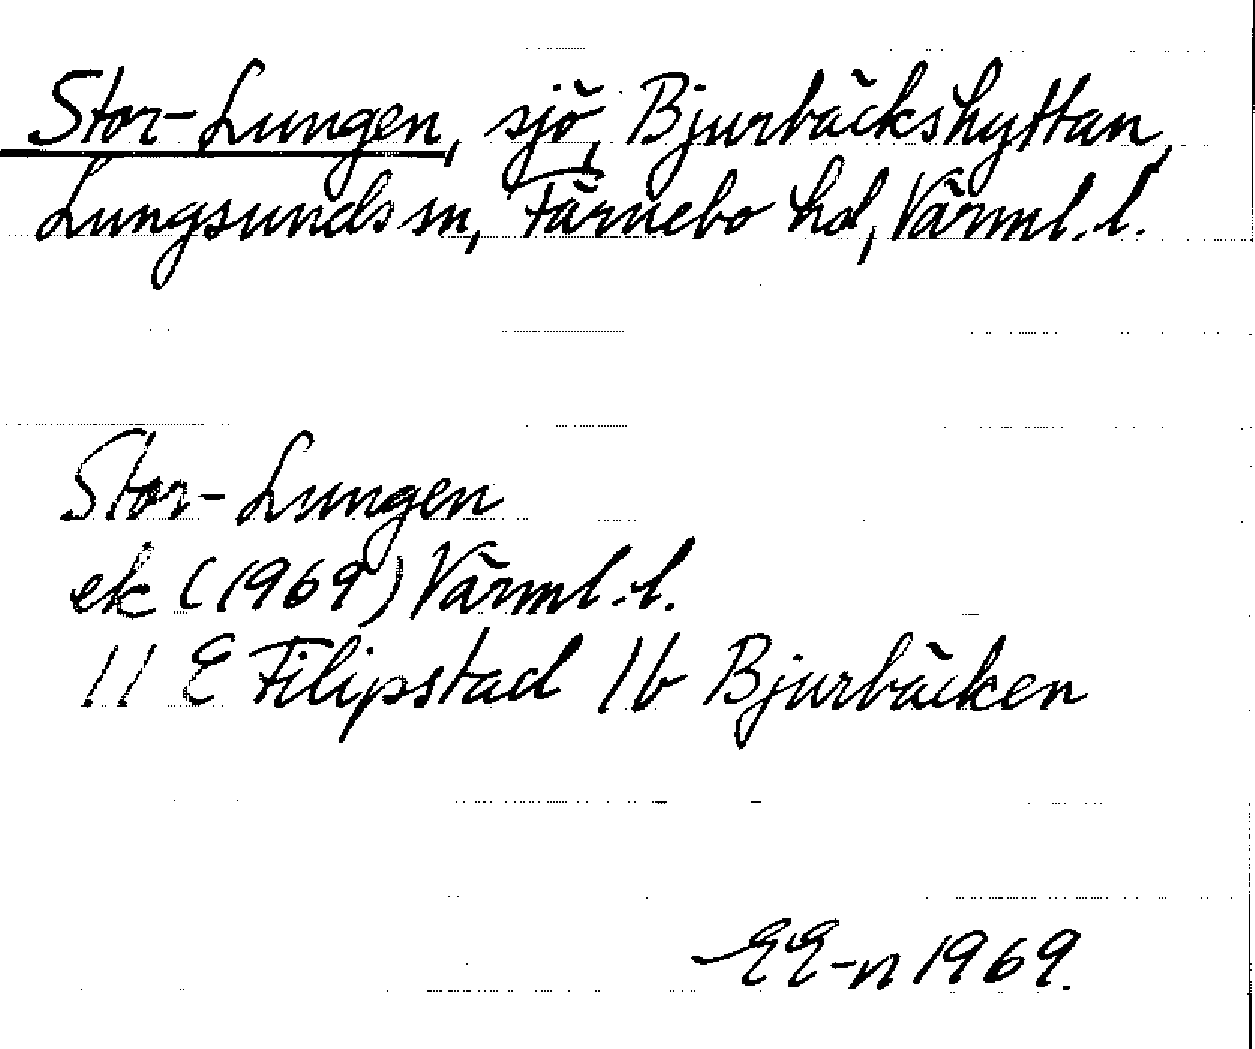 Stor-Lungen, sjö, Bjurbäckshyttan,
Lungsunds sn, Färnebo hd, Värml. l.
Stor-Lungen
ek (1969) Värml. l.
11 E Filipstad 1b Bjurbäcken
EE-n 1969.